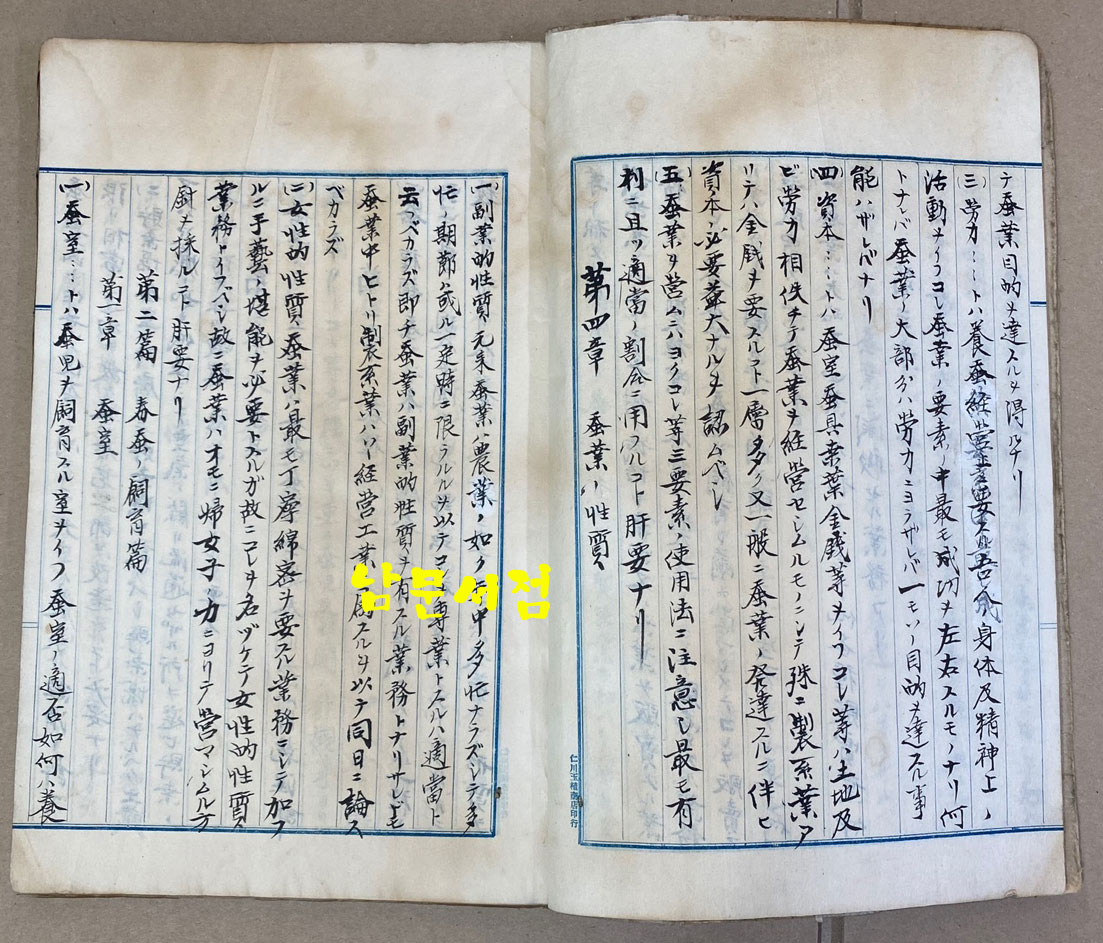 テ蚕業目的ヲ達スルヲ得ルナリ
(三)労力……トハ養蚕経営ニ要スル吾人ノ身体及精神上ノ
活動ヲイフコレ蚕業ノ要素ノ中最モ成功ヲ左右スルモノナリ何
トナレバ蚕業ノ大部分ハ労力ニヨラザレバ一モソノ目的ヲ達スル事
能ハザレバナリ
(四)資本……トハ蚕室蚕具桑葉金銭等ヲイフコレ等ハ土地及
ビ労力相俟チテ蚕業ヲ経営セシムルモノニシテ殊ニ製糸業ア
リテハ金銭ヲ要スルコト一層多ク又一般ニ蚕業ノ発達スルニ伴ヒ
資本ノ必要益大ナルヲ認ムベシ
(五)蚕業ヲ営ムニハヨクコレ等三要素ノ使用法ニ注意シ最モ有
利ニ且ツ適當ノ割合ニ用フルコト肝要ナリ
第四章 蚕業ノ性質
仁川玉積商店印行
(一)副業的性質、元来蚕業ハ農業ノ如ク年中多忙ナラズシテ多
忙ノ期節ハ或ル一定時ニ限ラルルヲ以テコレヲ専業トスルハ適當ト
云フベカラズ即チ蚕業ハ副業的性質ヲ有スル業務トナリサレドモ
蚕業中ヒトリ製糸業ハソノ経営工業ニ属スルヲ以テ同日ニ論ス
ベカラズ
(二)女性的性質、蚕業ハ最モ丁寧綿密ヲ要スル業務ニシテ加フ
ルニ手藝ノ堪能ヲ必要トスルガ故ニコレヲ名ヅケテ女性的性質ノ
業務トイフベシ故ニ蚕業ハオモニ婦女子ノ力ニヨリテ営マシムル方
針ヲ採ルコト肝要ナリ
第二篇 春蚕ノ飼育篇
第一章 蚕室
(一)蚕室……トハ蚕児ヲ飼育スル室ヲイフ蚕室ノ適否如何ハ養
남문서점